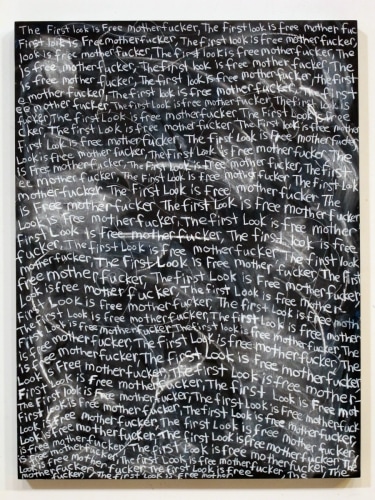 The First look is Free motherfucker, The First look is free mother fuc
First look is Free motherfucker, The first look is free motherfucker,
look is free motherfucker, The first look is free motherfucker, The
free motherfucker, The first look is free motherfucker, The
motherfucker, The first look is free motherfucker, The first
e motherfucker, The first look is free motherfucker, The First
ee motherfucker, The first look is free motherfucker, The first look is
cker, The first Look is free motherfucker, The first look is free
The first Look is free motherfucker, The first look is free
First look is free motherfucker, The first look is free
Look is free motherfucker, The first look is free motherfucker, The
is Free motherfucker, The first look is free motherfucker, The first
ee motherfucker, The first look is free motherfucker, The First
motherfucker, The First Look is free motherfucker, The first
Look is free motherfucker, The first Look is free
First Look is free motherfucker, The first look is
motherfucker, The first Look is free motherfucker, The
free motherfucker, The first Look is free motherfucker,
Look is free motherfucker, The first look is free
First Look is free motherfucker, The first Look is free mother
The first Look is free motherfucker, The first look is free
is free motherfucker, The first look is free motherfucker,
motherfucker, The first look is free motherfucker, The
Look is free motherfucker, The first Look is free
First Look is free motherfucker, The first look is free
First Look is free motherfucker, The first Look is Free mother
The first look is free motherfucker, The first Look is free
is free motherfucker, The first look is free motherfucker,
motherfucker, The first look is free motherfucker, The